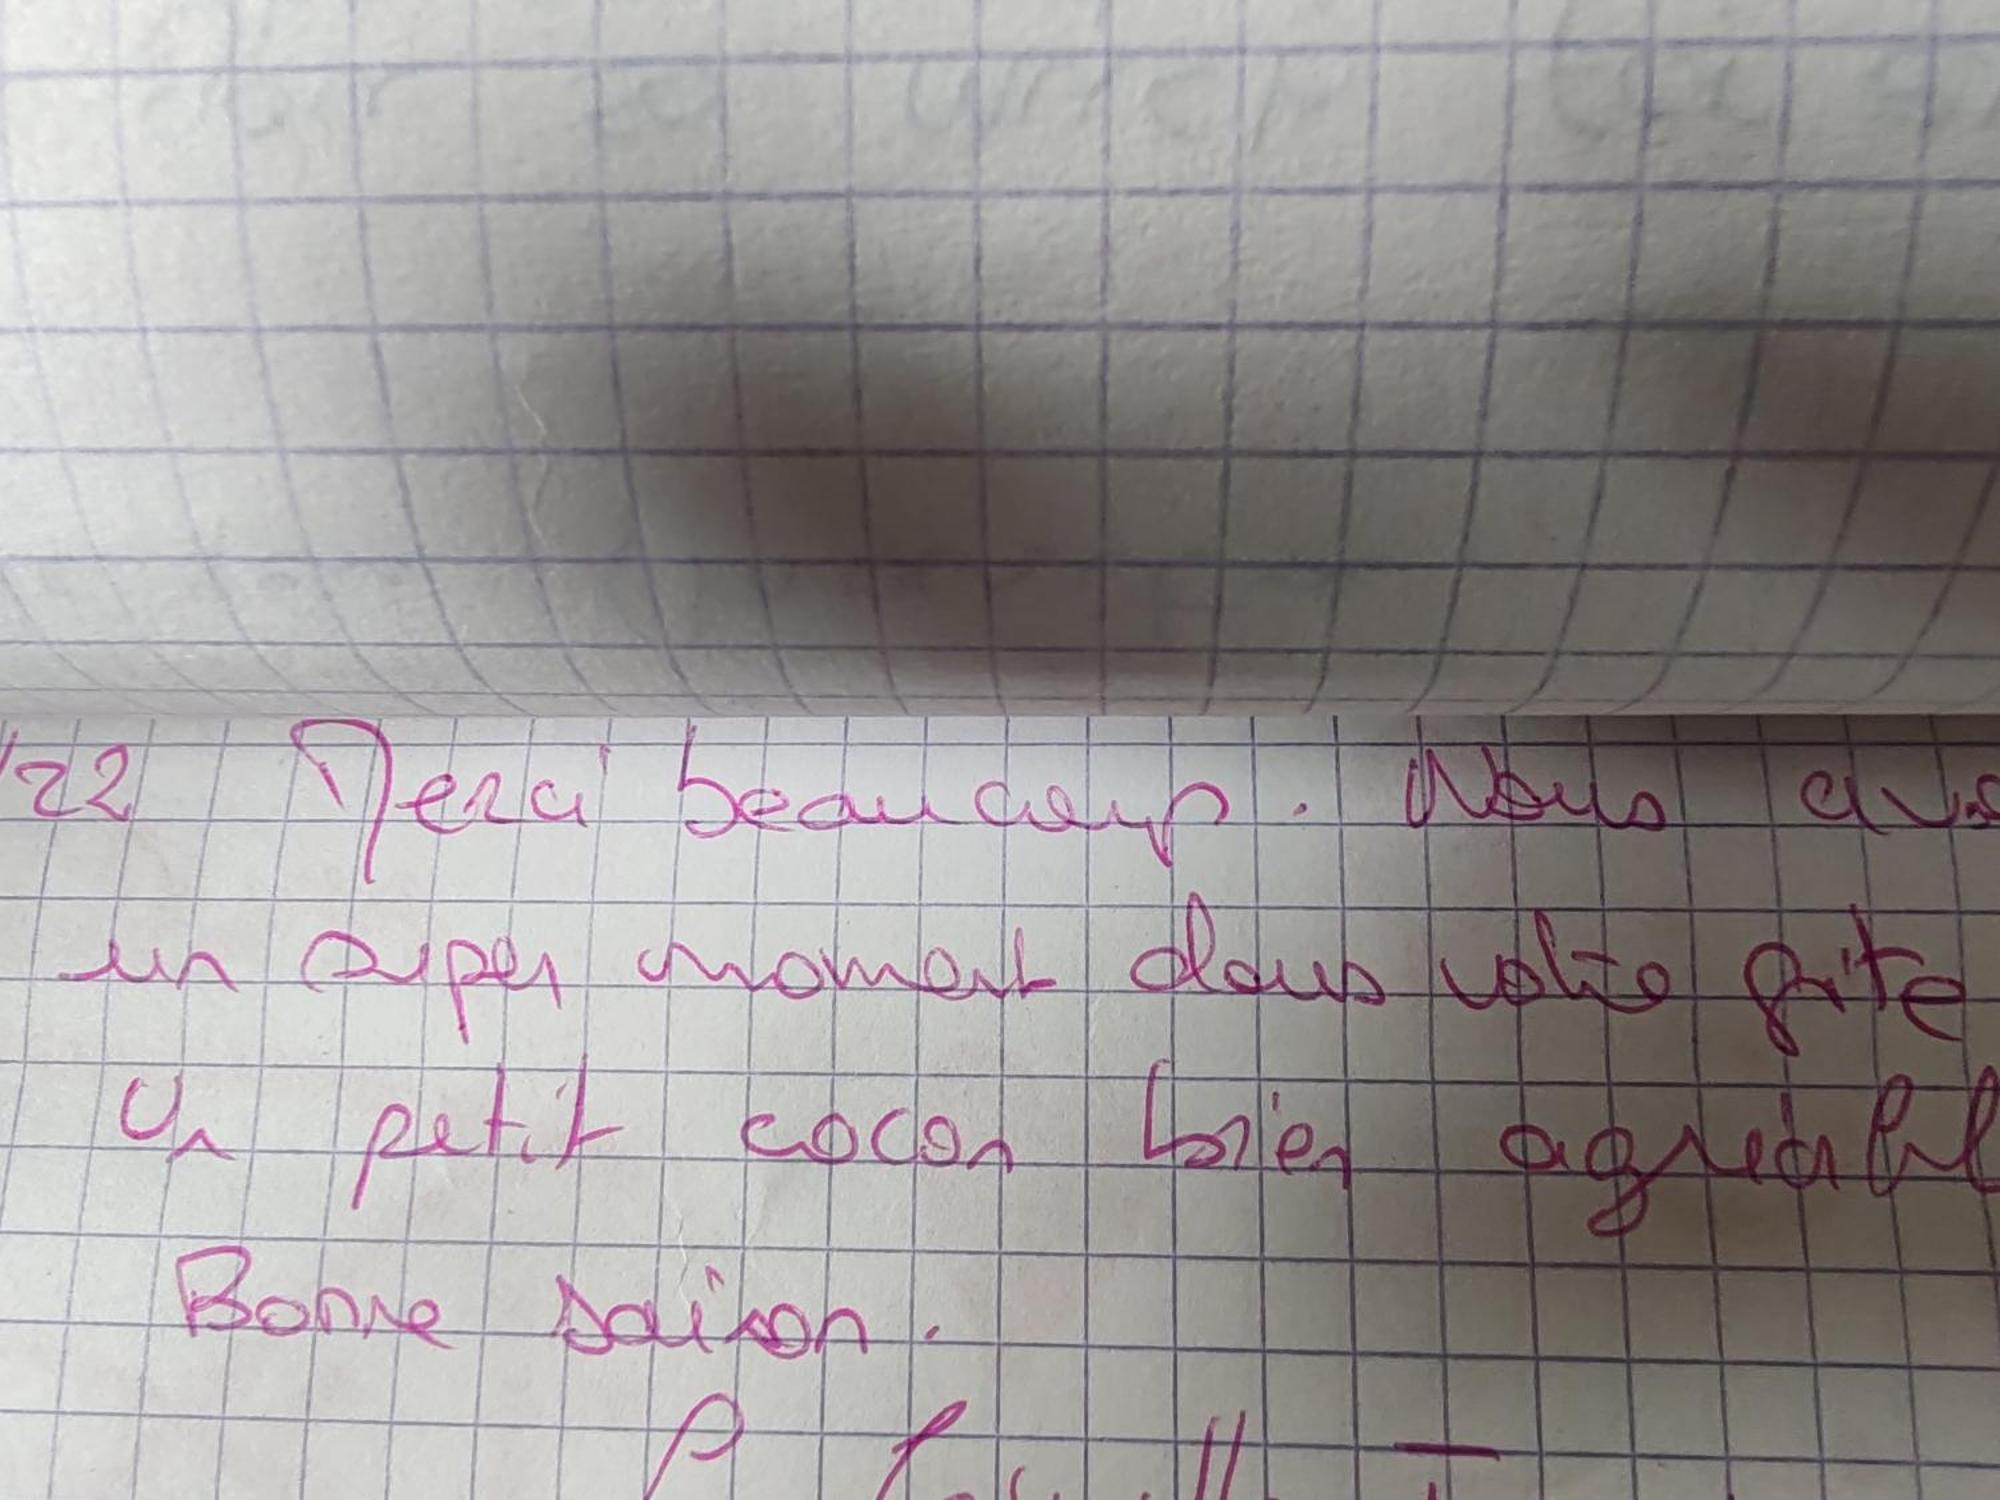 /22 Merci beaucoup. Nous avo
un super moment dans votre gîte
Un petit cocon bien agréabl
Bonne saison.